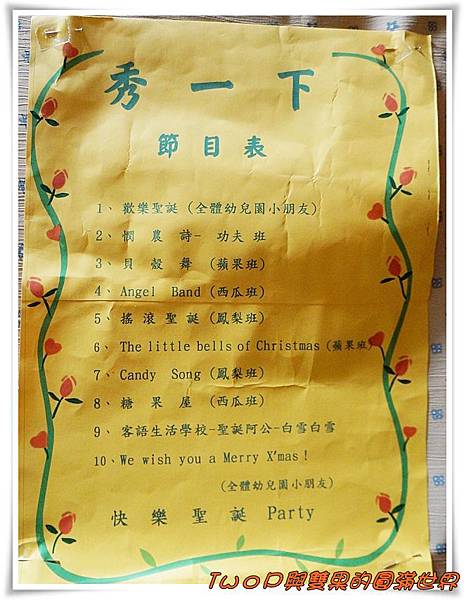 秀一下
節目表
1、歡樂聖誕(全體幼兒園小朋友)
2、憫農詩-功夫班
3、貝殼舞(蘋果班)
4、Angel Band(西瓜班)
5、搖滾聖誕(鳳梨班)
6、The little bells of Christmas(蘋果班)
7、Candy Song(鳳梨班)
8、糖果屋(西瓜班)
9、客語生活學校-聖誕阿公-白雪白雪
10、We wish you a Merry X'mas!
(全體幼兒園小朋友)
快樂聖誕 Party
TwoP與雙果的圓滿世界